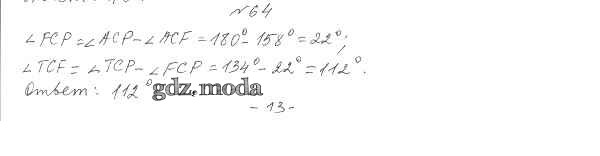 №64
∠FCP = ∠ACP - ∠ACF = 180° - 158° = 22°.
∠TCF = ∠TCP - ∠FCP = 134° - 22° = 112°.
Ответ: 112°
gdz.moda
- 13 -